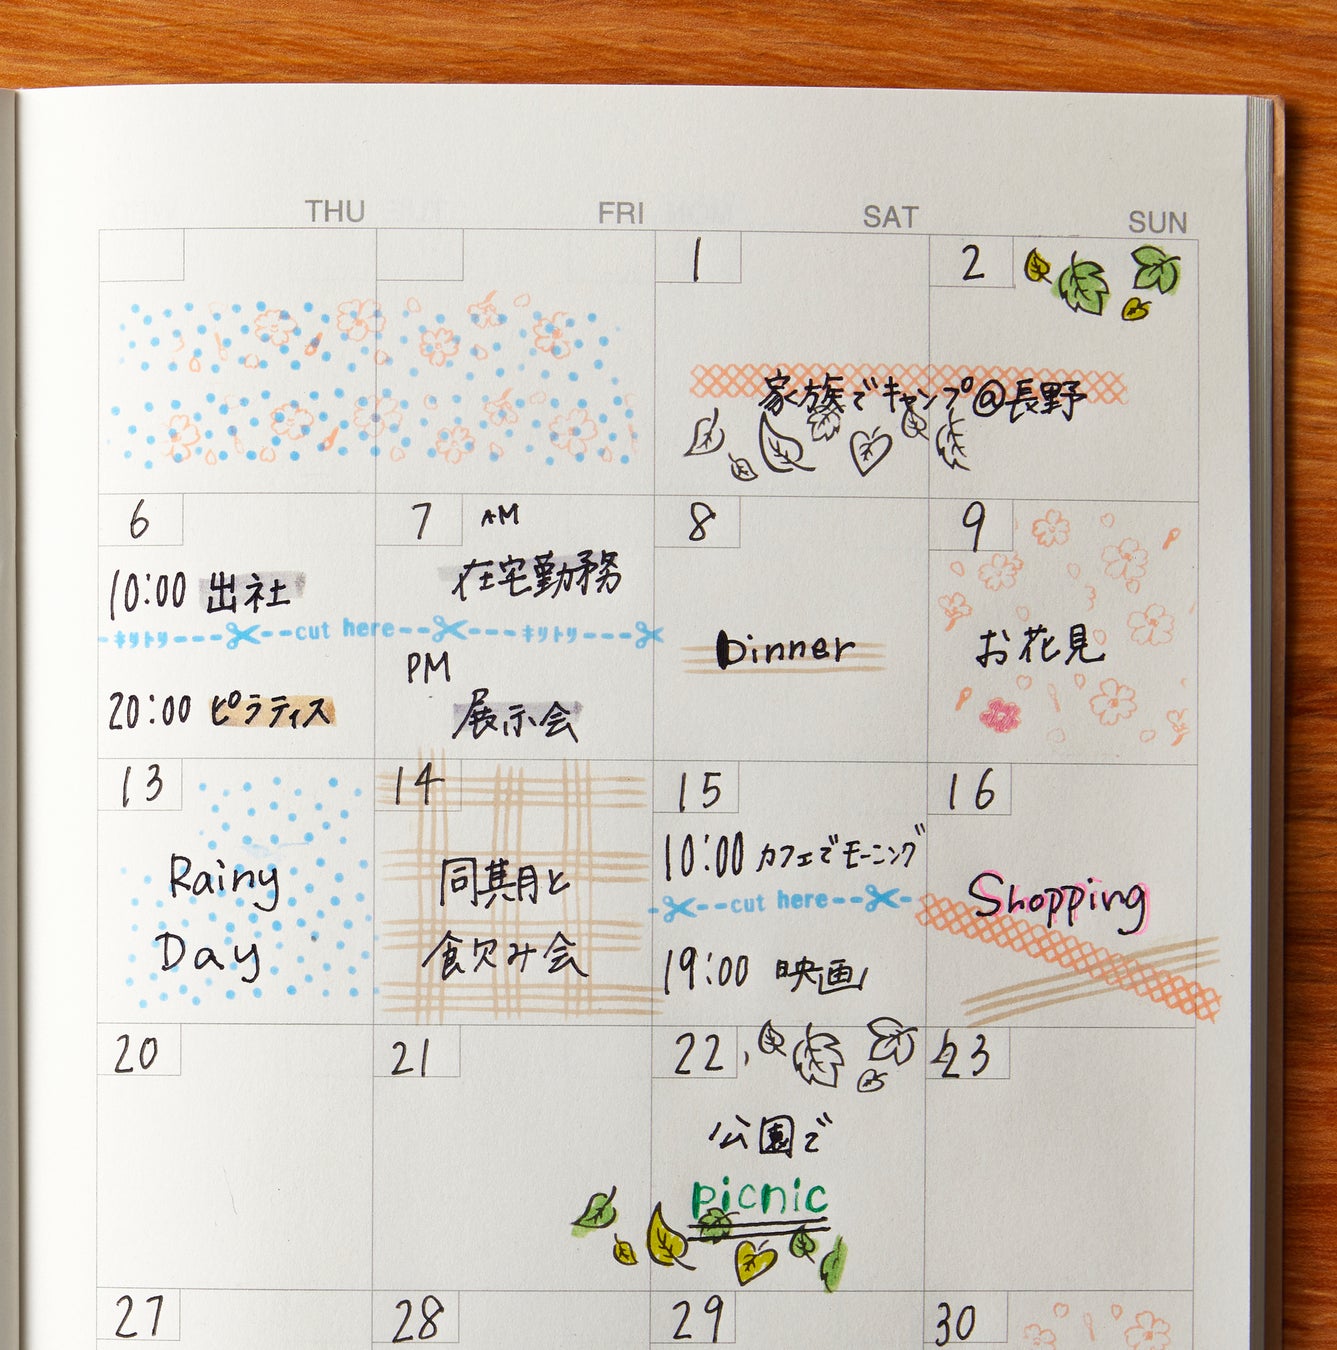 THU FRI SAT SUN
1 2
家族でキャンプ@長野
6 7 AM 8 9
10:00 出社
在宅勤務
キリトリ cut here キリトリ
PM
Dinner
お花見
20:00 ピラティス
展示会
13 14 15 16
Rainy
Day
同期と
食飲み会
10:00 カフェでモーニング
cut here
19:00 映画
Shopping
20 21 22 23
公園で
picnic
27 28 29 30